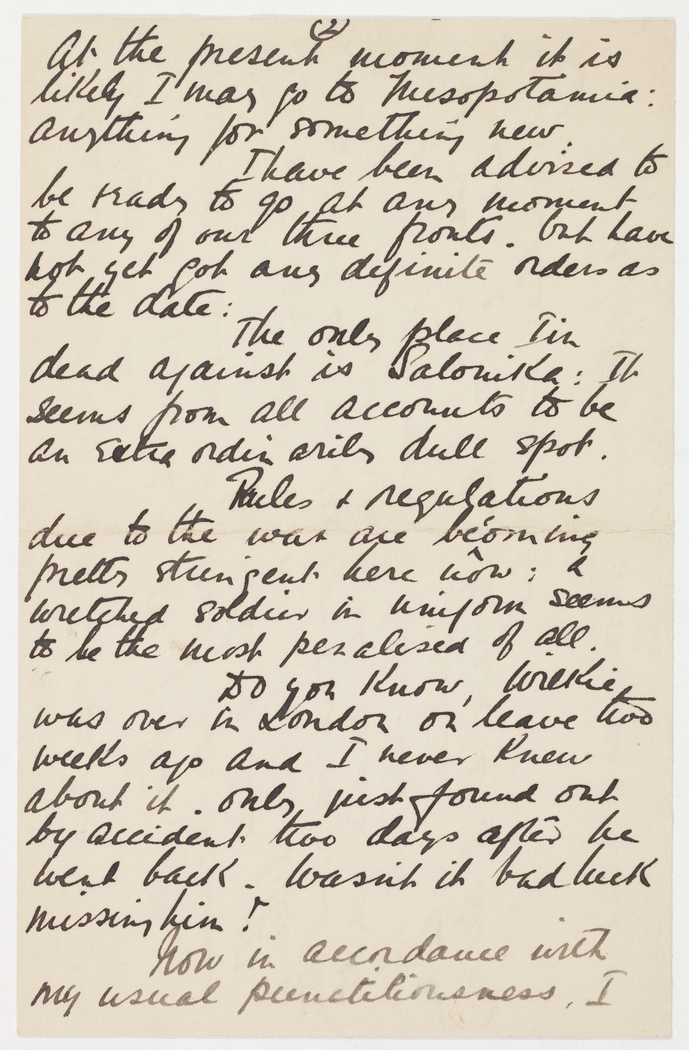 (2)
At the present moment it is
likely I may go to Mesopotamia:
anything for something new.
I have been advised to
be ready to go at any moment
to any of our three fronts. but have
not yet got any definite orders as
to the date:
The only place I'm
dead against is Salonika: It
seems from all accounts to be
an extraordinarily dull spot.
Rules & regulations
due to the war are becoming
pretty stringent here now: a
wretched soldier in uniform seems
to be the most penalised of all.
Do you know, Wilkie
was over in London on leave two
weeks ago and I never knew
about it. only just found out
by accident two days after he
went back. Wasn't it bad luck
missing him!
Now in accordance with
my usual punctitiousness, I